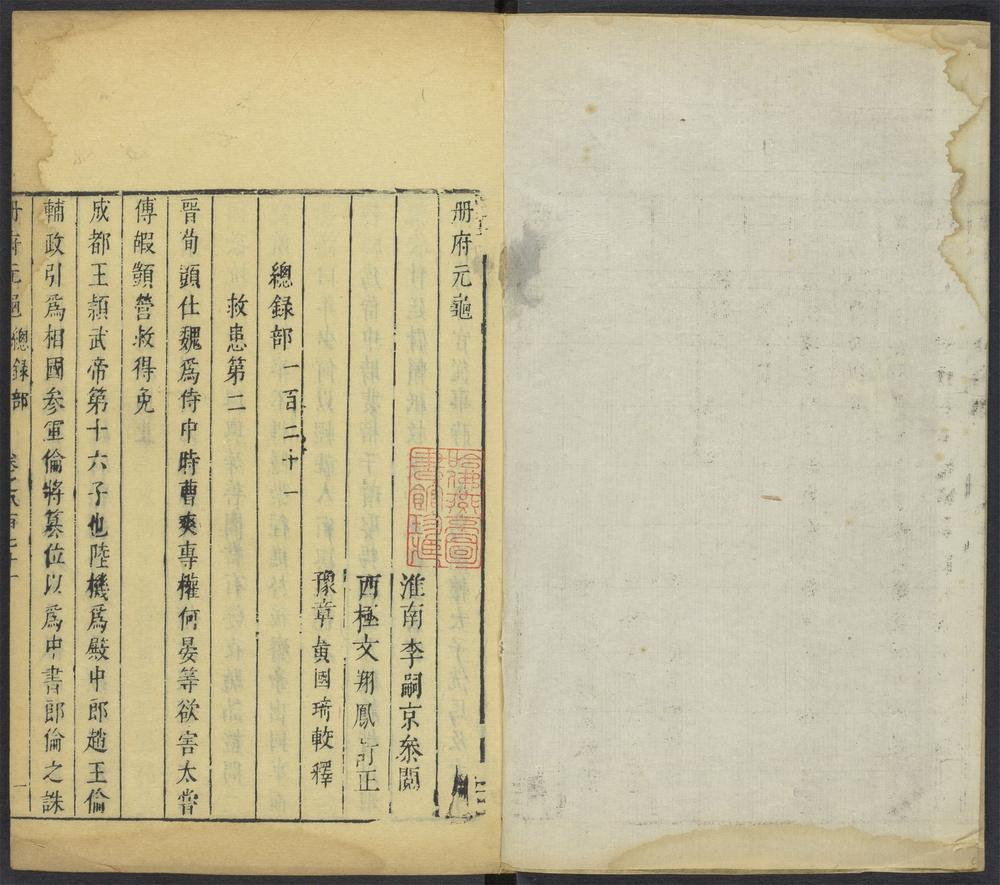 册府元龜
淮南李嗣京參閱
西極文翔鳳訂正
豫章黃國琦較釋
總録部一百二十一
救患第二
晉荀顗仕魏爲侍中時曹爽專權何晏等欲害太嘗
傅嘏顗營救得免
成都王穎武帝第十六子也陸機爲殿中郎趙王倫
輔政引爲相國參軍倫將簒位以爲中書郎倫之誅
册府元龜總録部
一
哈佛燕京圖書館珍藏